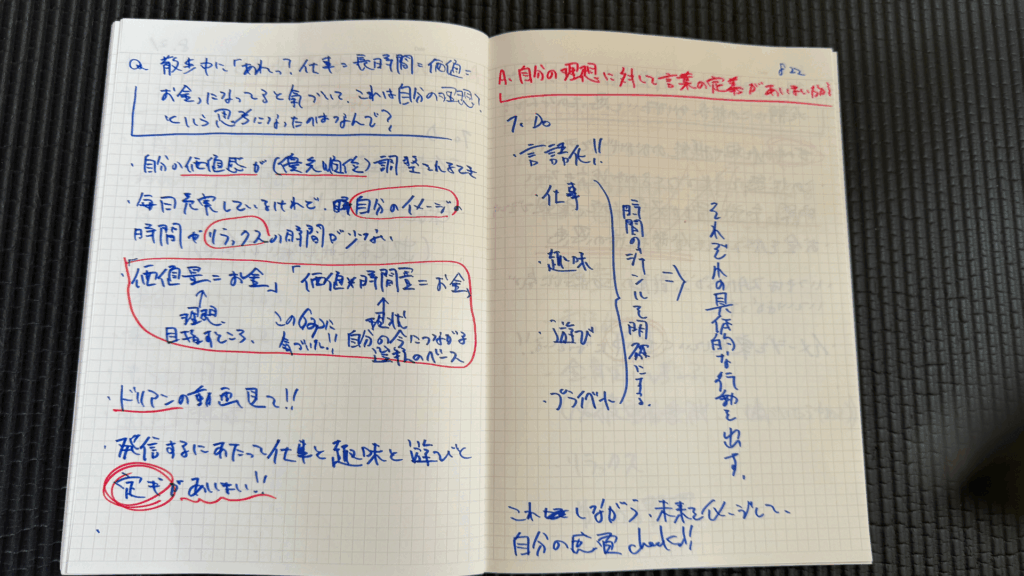 Q. 散歩中に「あれっ?仕事=長時間=価値=
お金」になってると気づいて、これは自分の理想?
という思考になったのはなんで?
・自分の価値感が(優先順位)調整
・毎日充実しているけれど、自分のイメージの
時間やリラックスの時間が少ない
・「価値量=お金」「価値×時間量=お金」
↑ ↑
理想 このGapに 現状
目指すところ、気づいた!! 自分の今につながる
選択のベース
・ドリアンの動画見て!!
・発信するにあたって仕事と趣味と遊びと
定ギがあいまい!!
822
A. 自分の理想に対して言葉の定義があいまいだから?
7. Do
・言語化!!
・仕事
・趣味
・遊び
・プライベート
時間のジャンルで明確にする。
=>
それぞれの具体的な行動を出す。
これをしながら、未来をイメージして、
自分の check!!